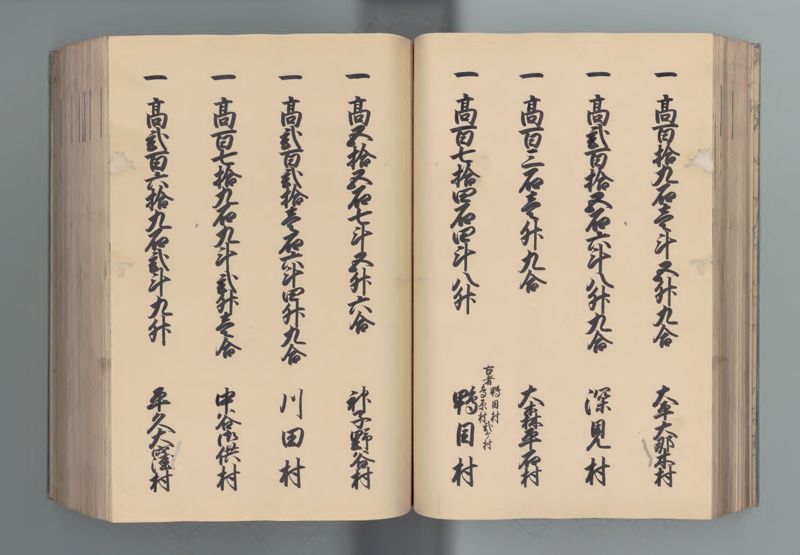 一 高百拾九石壱斗五升九合 大平大那木村
一 高弐百拾五石六斗八升九合 深見村
一 高百三石壱升九合 大森平石村
一 高百七拾四石四斗八升 鴨目村
古者鴨目村
村弐ヶ村
一 高五拾五石七斗五升六合 神子野谷村
一 高弐百弐拾壱石六斗四升九合 川田村
一 高百七拾九石九斗弐升壱合 中谷御供村
一 高弐百六拾九石弐斗九升 平久大窪村